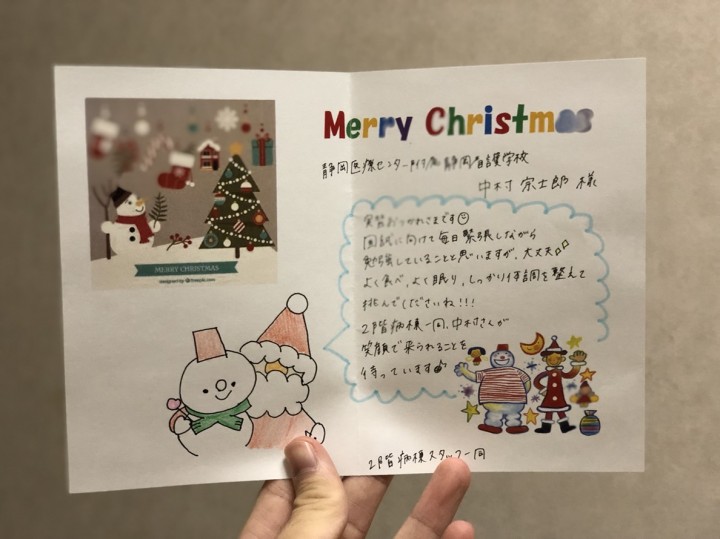 MERRY CHRISTMAS
designed by freepik.com
Merry Christmas
静岡医療センター附属静岡看護学校
中村 宗士郎 様
実習おつかれさまです
国試に向けて毎日緊張しながら
勉強していることと思いますが、大丈夫
よく食べ、よく眠り、しっかり体調を整えて
挑んでくださいね!!!
2階病棟一同、中村さんが
笑顔で来られることを
待っています
2階病棟スタッフ一同